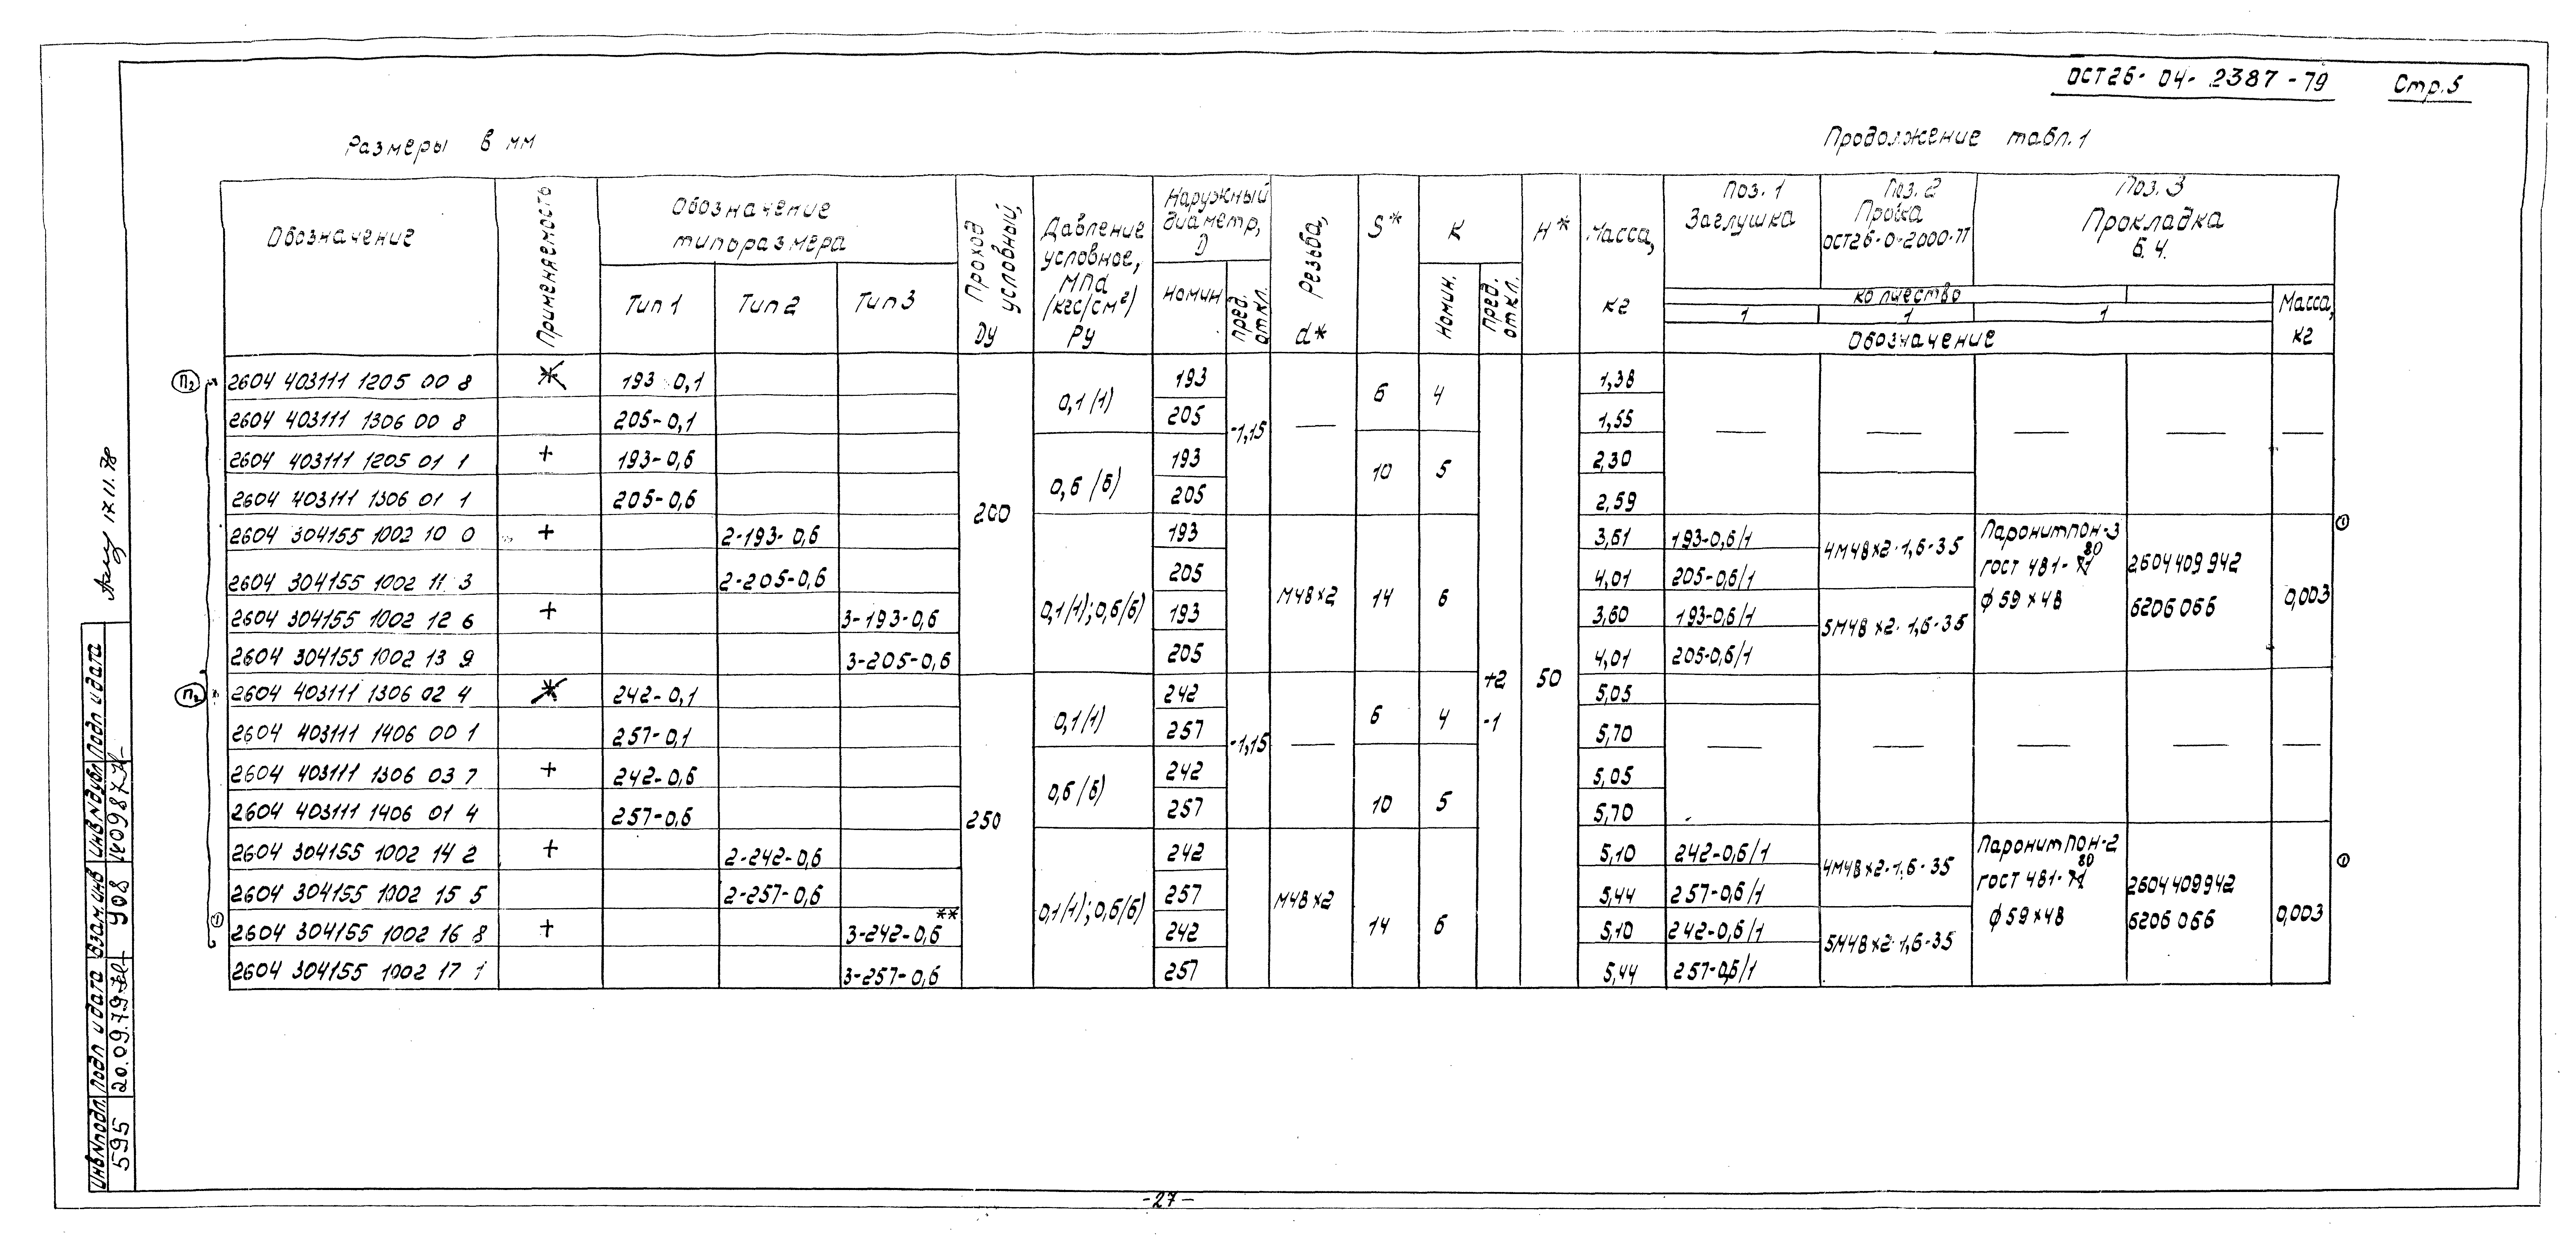 ОСТ26-04-2387-79 Стр.5
Размеры в мм
Продолжение табл.1
Обозначение
Применяемость
Обозначение типоразмера
Тип 1 Тип 2 Тип 3
Проход условный, Ду
Давление условное, МПа (кгс/см²) Ру
Наружный диаметр, D
Номин. пред. откл.
Резьба, d*
S*
К
Номин. пред. откл.
Н*
Масса, кг
Поз. 1 Заглушка
Поз. 2 Пробка
Поз. 3 Прокладка Б.Ч.
количество
1 1 1
Обозначение
Масса, кг
П2 2604 403111 1205 00 8 * 193-0,1 193 1,38
2604 403111 1306 00 8 205-0,1 205 1,55
2604 403111 1205 01 1 + 193-0,6 193 2,30
2604 403111 1306 01 1 205-0,6 205 2,59
2604 304155 1002 10 0 + 2-193-0,6 193 3,61 193-0,6/1
2604 304155 1002 11 3 2-205-0,6 205 4,01 205-0,6/1
2604 304155 1002 12 6 + 3-193-0,6 193 3,60 193-0,6/1
2604 304155 1002 13 9 3-205-0,6 205 4,01 205-0,6/1
П2 2604 403111 1306 02 4 * 242-0,1 242 5,05
2604 403111 1406 00 1 257-0,1 257 5,70
2604 403111 1306 03 7 + 242-0,6 242 5,05
2604 403111 1406 01 4 257-0,6 257 5,70
2604 304155 1002 14 2 + 2-242-0,6 242 5,10 242-0,6/1
2604 304155 1002 15 5 2-257-0,6 257 5,44 257-0,6/1
2604 304155 1002 16 8 + 3-242-0,6** 242 5,10 242-0,6/1
2604 304155 1002 17 1 3-257-0,6 257 5,44 257-0,6/1
200
250
0,1(1)
0,6(6)
0,1(1);0,6(6)
0,1(1)
0,6(6)
0,1(1);0,6(6)
-1,15
-1,15
М48×2
М48×2
6
10
14
6
10
14
4
5
6
4
5
6
+2
-1
50
4М48×2-1,6-35
5М48×2-1,6-35
Паронит ПОН-3
ГОСТ 481-80
ф59×48
2604409942
6206066
0,003
4М48×2-1,6-35
5М48×2-1,6-35
Паронит ПОН-2
ГОСТ 481-80
ф59×48
2604409942
6206066
0,003
17.11.78
Инв№подл. Подп и дата Взам.инв Инв№дубл Подп и дата
595 20.09.79 908
-27-